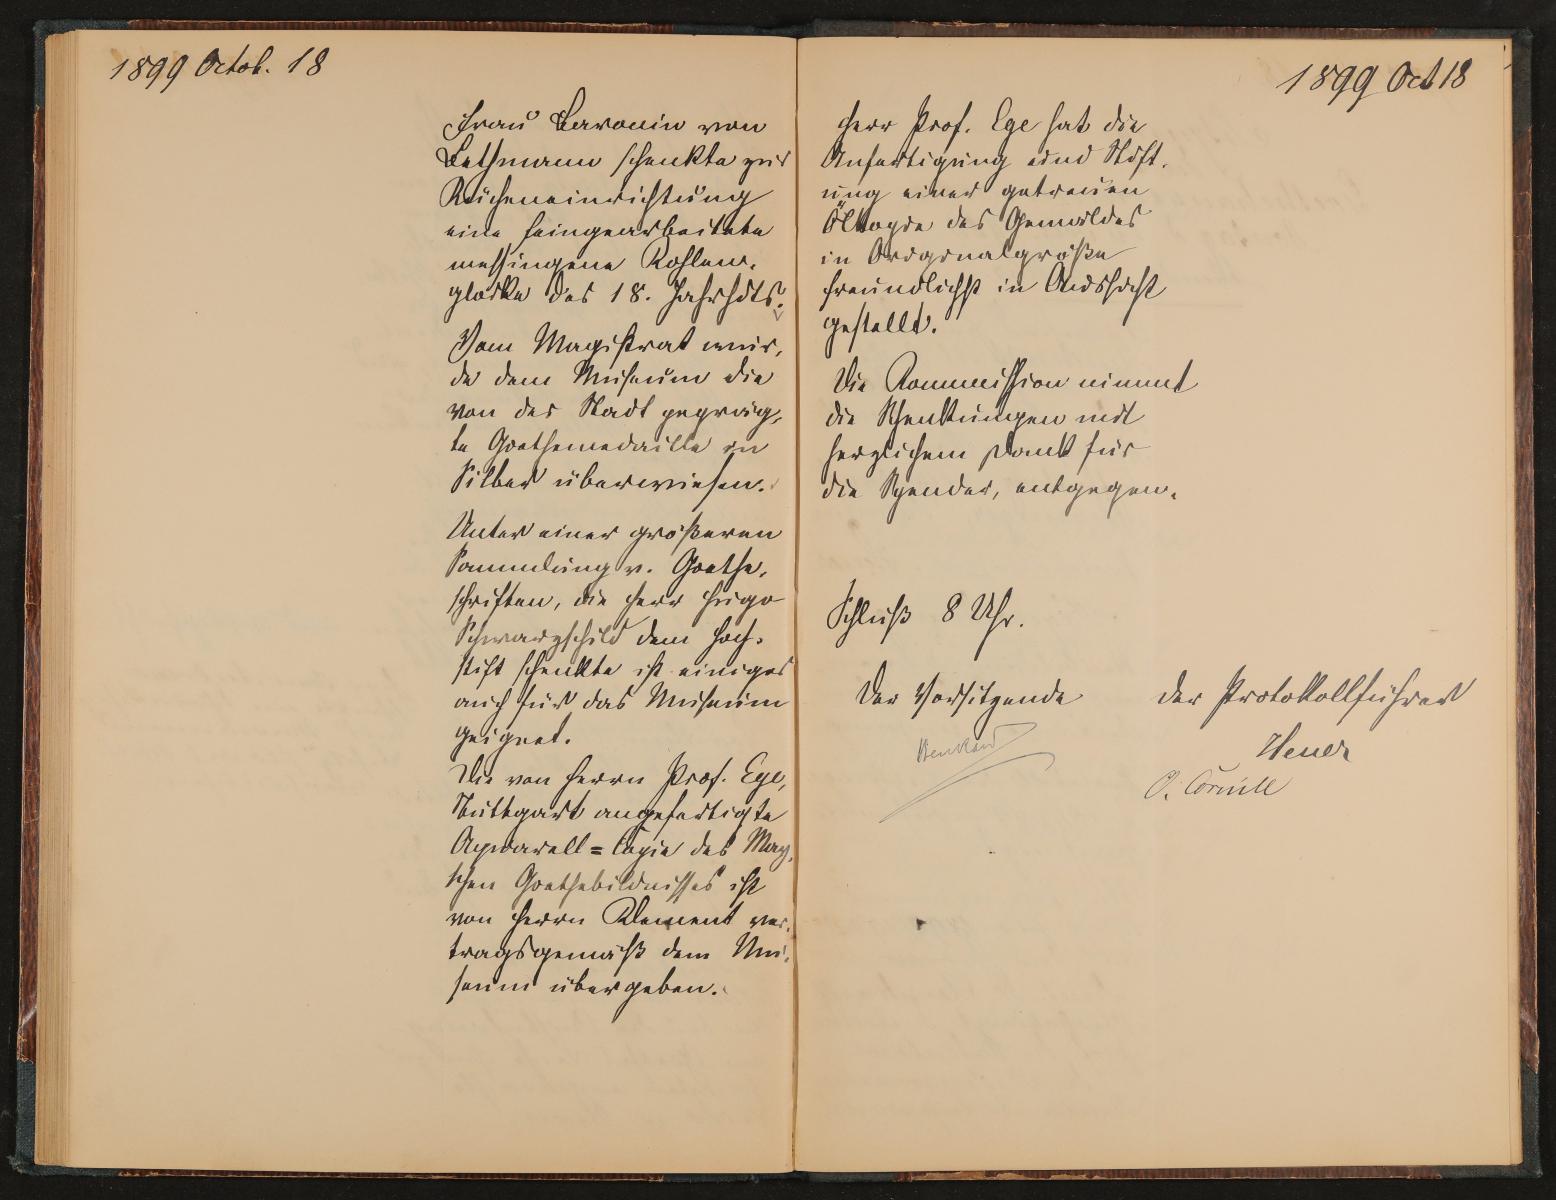 1899 Octob. 18
Frau Baronin von
Bethmann schenkte zur
Kücheneinrichtung
eine feingearbeitete
messingene Kohlen-
glocke des 18. Jahrhdts.
Vom Magistrat wur-
de dem Museum die
von der Stadt gepräg-
te Goethemedaille in
Silber überwiesen.
Unter einer größeren
Sammlung v. Goethe-
schriften, die Herr Hugo
Schwarzschild dem Hoch-
stift schenkte ist einiges
auch für das Museum
geignet.
Die von Herrn Prof. Ege,
Stuttgart angefertigte
Aquarell=Copie des May-
schen Goethebildnisses ist
von Herrn Klement ver-
tragsgemäß dem Mu-
seum übergeben.
1899 Oct 18
Herr Prof. Ege hat die
Anfertigung und Stift-
ung einer getreuen
Ölkopie des Gemäldes
in Originalgröße
freundlichst in Aussicht
gestellt.
Die Kommission nimmt
die Schenkungen mit
herzlichem Dank für
die Spender, entgegen.
Schluß 8 Uhr.
Der Vorsitzende
Der Protokollführer
Benkard
Heuer
O. Cornill